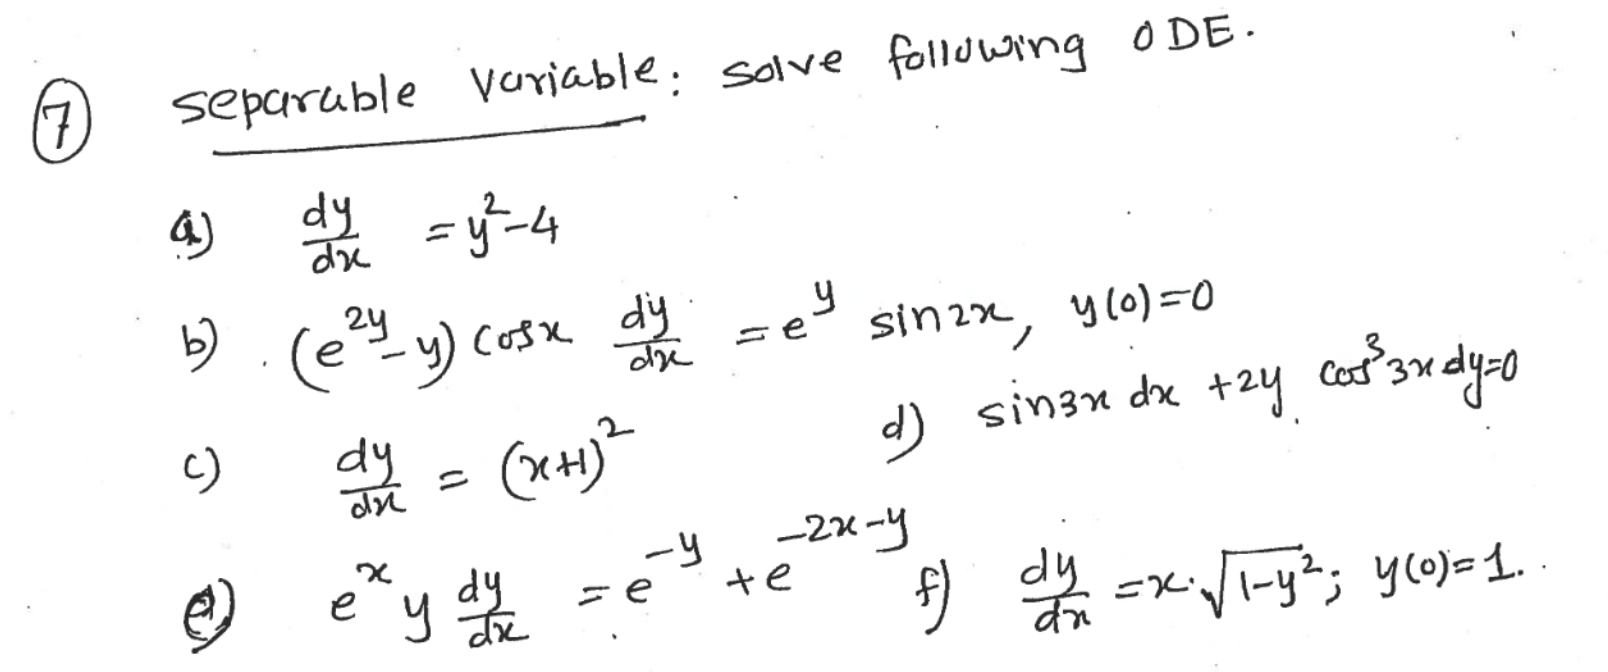 ⑦ separable variable: solve following ODE.
a) dy/dx = y²-4
b) (e^{2y}-y) cosx dy/dx = e^y sin2x, y(0)=0
c) dy/dx = (x+1)²
d) sin3x dx +2y cos³3x dy=0
e) e^x y dy/dx = e^{-y} + e^{-2x-y}
f) dy/dx = x·√(1-y²); y(0)=1.